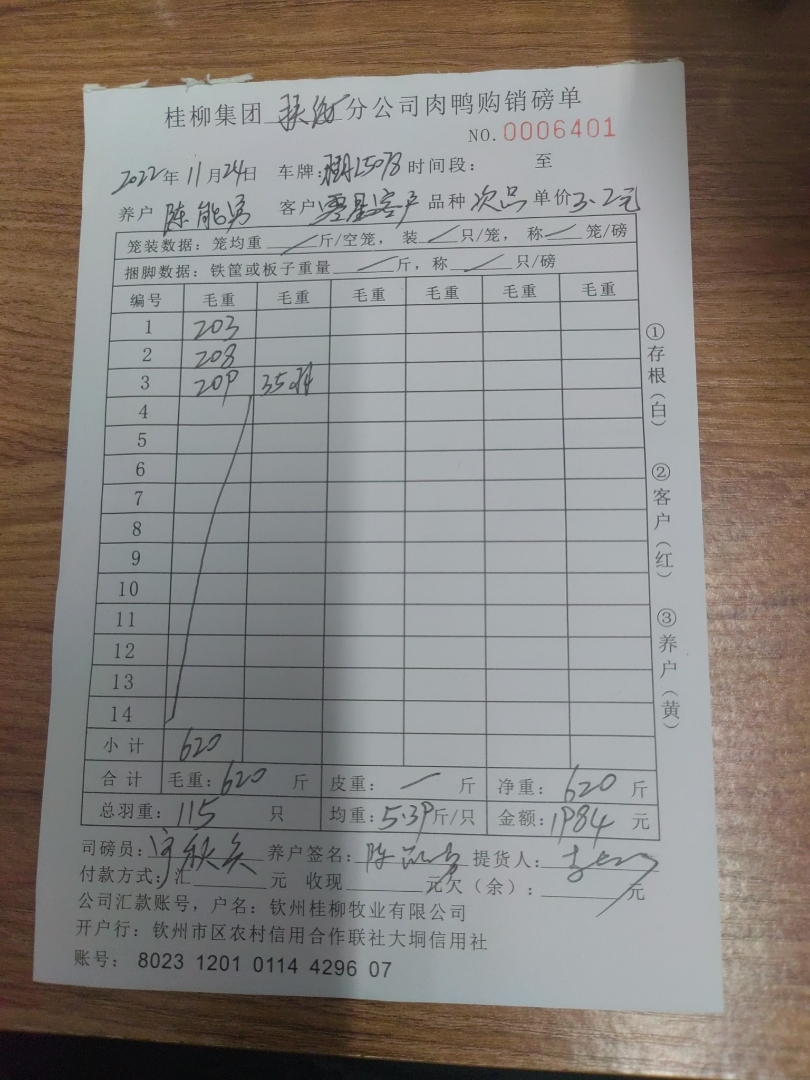 桂柳集团 分公司肉鸭购销磅单
NO.0006401
2022年11月24日 车牌: L5078 时间段: 至
养户 陈能勇 客户 零星客户 品种 次品 单价 3.2元
笼装数据：笼均重 / 斤/空笼， 装 / 只/笼， 称 / 笼/磅
捆脚数据：铁筐或板子重量 / 斤，称 / 只/磅
编号 毛重 毛重 毛重 毛重 毛重 毛重
1 203
2 208
3 209 35
4
5
6
7
8
9
10
11
12
13
14
小计 620
合计 毛重：620 斤 皮重： / 斤 净重：620 斤
总羽重：115 只 均重：5.39斤/只 金额：1984 元
司磅员： 养户签名：陈能勇 提货人：
付款方式：汇 元 收现 元欠（余）： 元
公司汇款账号，户名：钦州桂柳牧业有限公司
开户行：钦州市区农村信用合作联社大垌信用社
账号： 8023 1201 0114 4296 07
①存根（白） ②客户（红） ③养户（黄）